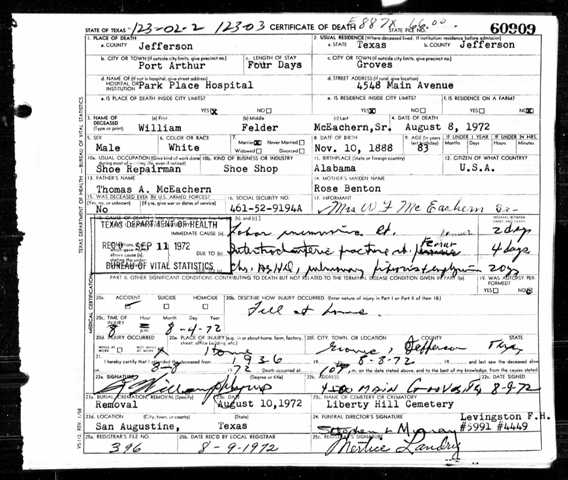 STATE OF TEXAS 123-02-2 123-03 CERTIFICATE OF DEATH E887X 66.00 STATE FILE NO. 60909
1. PLACE OF DEATH 2. USUAL RESIDENCE (Where deceased lived. If institution: residence before admission)
a. COUNTY Jefferson a. STATE Texas b. COUNTY Jefferson
b. CITY OR TOWN (If outside city limits, give precinct no.) c. LENGTH OF STAY c. CITY OR TOWN (If outside city limits, give precinct no.)
Port Arthur Four Days Groves
d. NAME OF (If not in hospital, give street address) HOSPITAL OR INSTITUTION Park Place Hospital d. STREET ADDRESS (If rural, give location) 4548 Main Avenue
e. IS PLACE OF DEATH INSIDE CITY LIMITS? e. IS RESIDENCE INSIDE CITY LIMITS? f. IS RESIDENCE ON A FARM?
YES X NO YES X NO YES NO X
3. NAME OF DECEASED (Type or print) (a) First (b) Middle (c) Last 4. DATE OF DEATH
William Felder McEachern,Sr. August 8, 1972
5. SEX 6. COLOR OR RACE 7. Married X Never Married Widowed Divorced 8. DATE OF BIRTH 9. AGE IF UNDER 1 YEAR IF UNDER 24 HRS.
Male White Nov. 10, 1888 83 Months Days Hours Min.
10a. USUAL OCCUPATION 10b. KIND OF BUSINESS OR INDUSTRY 11. BIRTHPLACE (State or foreign country) 12. CITIZEN OF WHAT COUNTRY?
Shoe Repairman Shoe Shop Alabama U.S.A.
13. FATHER'S NAME 14. MOTHER'S MAIDEN NAME
Thomas A. McEachern Rose Benton
15. WAS DECEASED EVER IN U.S. ARMED FORCES? 16. SOCIAL SECURITY NO. 17. INFORMANT
No 461-52-9194A Mrs W F McEachern
TEXAS DEPARTMENT OF HEALTH
REC'D SEP 11 1972
BUREAU OF VITAL STATISTICS
IMMEDIATE CAUSE (a) Lobar pneumonia Lt. 2 days
DUE TO (b) Intertrochanteric fracture Femur 4 days
20 yrs
PART II. OTHER SIGNIFICANT CONDITIONS CONTRIBUTING TO DEATH BUT NOT RELATED TO THE TERMINAL DISEASE CONDITION GIVEN IN PART I(a) 19. WAS AUTOPSY PERFORMED?
YES NO X
20a. ACCIDENT SUICIDE HOMICIDE 20b. DESCRIBE HOW INJURY OCCURRED. (Enter nature of injury in Part I or Part II of item 18)
Fell at home
20c. TIME OF INJURY 8 8-4-72
20d. INJURY OCCURRED 20e. PLACE OF INJURY 20f. CITY, TOWN, OR LOCATION COUNTY STATE
Home Groves, Jefferson Texas
21. I hereby certify that I attended the deceased from 1936 to 8-8 72 and last saw the deceased alive on 8-8-72 Death occurred at m., on the date stated above, and to the best of my knowledge, from the causes stated.
22a. SIGNATURE 22b. ADDRESS 22c. DATE SIGNED
Main Groves, Tx 8-9-72
23a. BURIAL, CREMATION, REMOVAL (Specify) 23b. DATE 23c. NAME OF CEMETERY OR CREMATORY
Removal August 10,1972 Liberty Hill Cemetery
23d. LOCATION (City, town, or county) (State) 24. FUNERAL DIRECTOR'S SIGNATURE Levingston F.H.
San Augustine, Texas #5991 #4449
25a. REGISTRAR'S FILE NO. 25b. DATE REC'D BY LOCAL REGISTRAR 25c. REGISTRAR'S SIGNATURE
396 8-9-1972 Mertice Landry
TEXAS DEPARTMENT OF HEALTH — BUREAU OF VITAL STATISTICS
MEDICAL CERTIFICATION